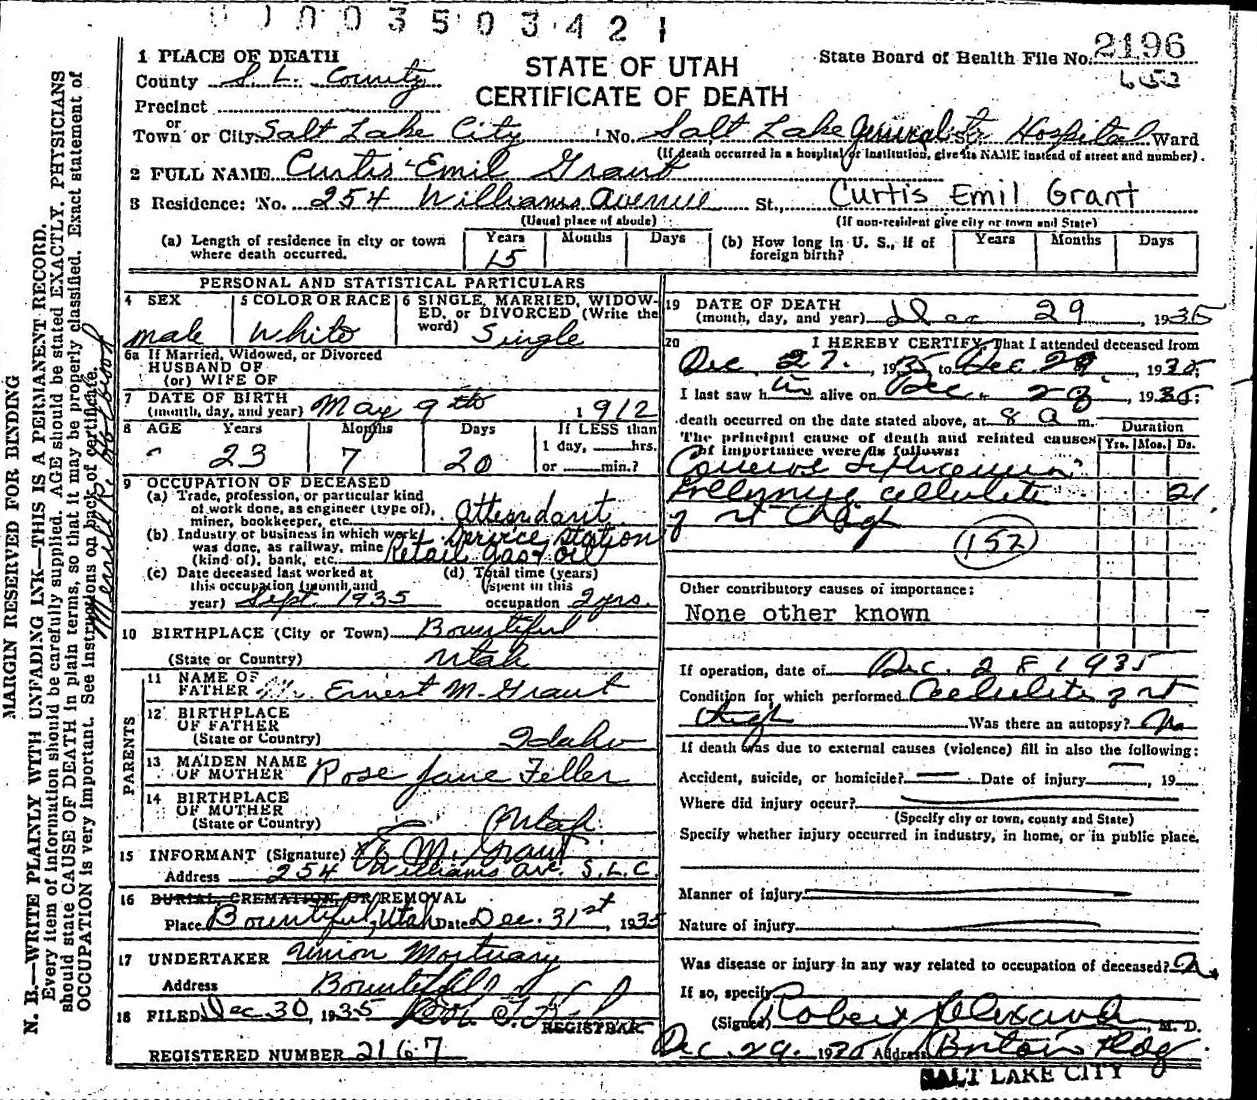 0 1 0 0 3 5 0 3 4 2 1
1 PLACE OF DEATH
County S. L. County
Precinct
or
Town or City Salt Lake City No. Salt Lake General St. Hospital Ward
(If death occurred in a hospital or institution, give its NAME instead of street and number).
STATE OF UTAH
CERTIFICATE OF DEATH
State Board of Health File No. 2196
652
2 FULL NAME Curtis Emil Grant
3 Residence: No. 254 Williams Avenue St., Curtis Emil Grant
(Usual place of abode) (If non-resident give city or town and State)
(a) Length of residence in city or town where death occurred. Years 15 Months Days
(b) How long in U. S., if of foreign birth? Years Months Days
PERSONAL AND STATISTICAL PARTICULARS
4 SEX male
5 COLOR OR RACE White
6 SINGLE, MARRIED, WIDOWED, or DIVORCED (Write the word) Single
6a If Married, Widowed, or Divorced
HUSBAND OF
(or) WIFE OF
7 DATE OF BIRTH
(month, day, and year) May 9th 1912
8 AGE Years 23 Months 7 Days 20 If LESS than
1 day, hrs.
or min.?
9 OCCUPATION OF DECEASED
(a) Trade, profession, or particular kind
of work done, as engineer (type of),
miner, bookkeeper, etc. Attendant
(b) Industry or business in which work
was done, as railway, mine
(kind of), bank, etc. Service Station
Retail Gas & Oil
(c) Date deceased last worked at
this occupation (month and
year) Sept. 1935
(d) Total time (years)
spent in this
occupation 2 yrs.
10 BIRTHPLACE (City or Town) Bountiful
(State or Country) Utah
PARENTS
11 NAME OF
FATHER Ernest M. Grant
12 BIRTHPLACE
OF FATHER
(State or Country) Idaho
13 MAIDEN NAME
OF MOTHER Rose Jane Feller
14 BIRTHPLACE
OF MOTHER
(State or Country) Utah
15 INFORMANT (Signature) E. M. Grant
Address 254 Williams Ave. S.L.C.
16 BURIAL, CREMATION, OR REMOVAL
Place Bountiful, Utah Date Dec. 31st, 1935
17 UNDERTAKER Union Mortuary
Address Bountiful
18 FILED Dec 30, 1935
REGISTRAR
REGISTERED NUMBER 2167
19 DATE OF DEATH
(month, day, and year) Dec 29, 1935
20 I HEREBY CERTIFY, That I attended deceased from
Dec 27, 1935, to Dec. 29, 1935;
I last saw him alive on Dec. 28, 1935;
death occurred on the date stated above, at 8 a m.
The principal cause of death and related causes
of importance were as follows:
Duration
Yrs. Mos. Ds.
cellulitis 21
of rt Thigh
152
Other contributory causes of importance:
None other known
If operation, date of Dec. 28 1935
Condition for which performed Cellulitis of rt
thigh Was there an autopsy? No
If death was due to external causes (violence) fill in also the following:
Accident, suicide, or homicide? Date of injury 19
Where did injury occur?
(Specify city or town, county and State)
Specify whether injury occurred in industry, in home, or in public place.
Manner of injury
Nature of injury
Was disease or injury in any way related to occupation of deceased?
If so, specify
(Signed) Robert Alexander, M. D.
Dec. 29, 1935 Address Boston Bldg
SALT LAKE CITY
MARGIN RESERVED FOR BINDING
N. B.—WRITE PLAINLY WITH UNFADING INK—THIS IS A PERMANENT RECORD.
Every item of information should be carefully supplied. AGE should be stated EXACTLY. PHYSICIANS
should state CAUSE OF DEATH in plain terms, so that it may be properly classified. Exact statement of
OCCUPATION is very important. See instructions on back of certificate.
Merrill R.